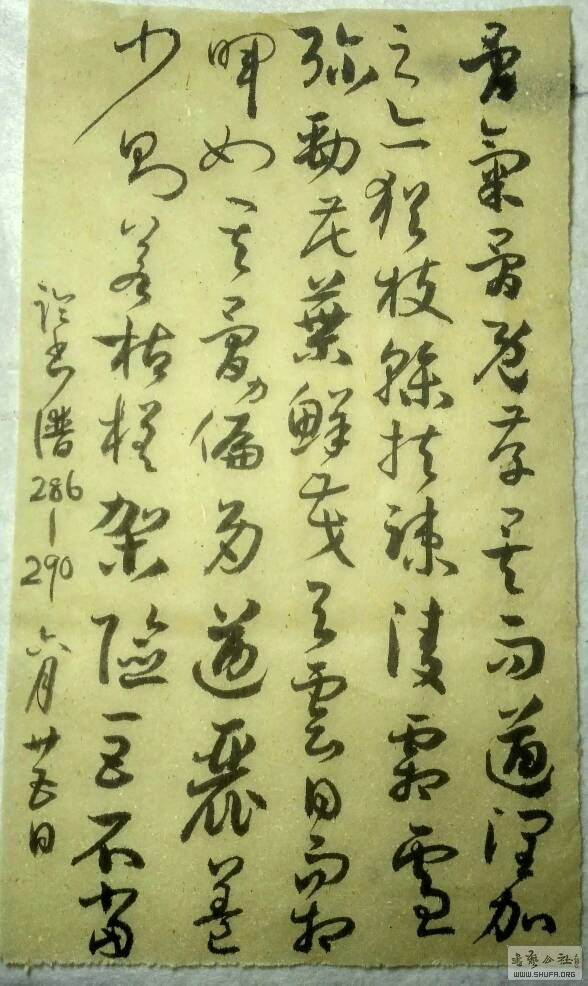 骨氣骨既存矣而遒潤加
之亦猶枝榦扶疎凌霜雪
弥勁花葉鮮茂与雲日而相
暉如其骨力偏多遒麗盖
少則若枯槎架險巨石當
临书譜286-290 六月廿五日
书艺公社
WWW.SHUFA.ORG